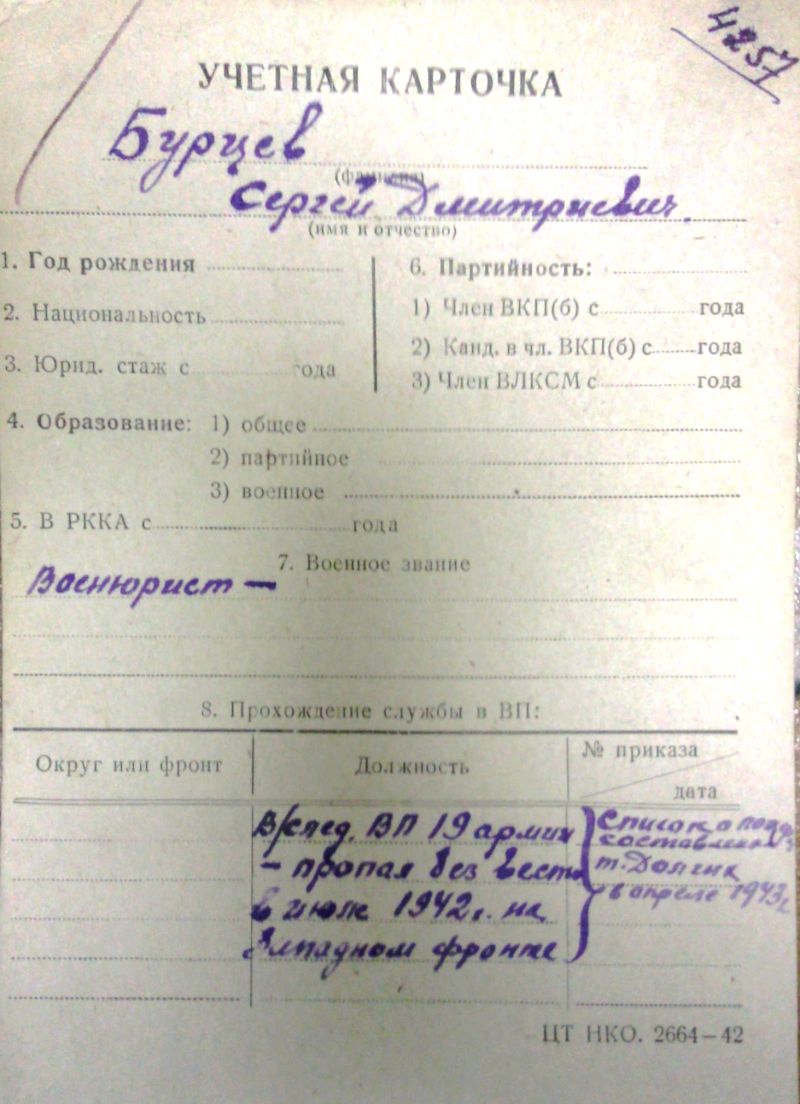 4257
УЧЕТНАЯ КАРТОЧКА
Бурцев
(фамилия)
Сергей Дмитриевич.
(имя и отчество)
1. Год рождения
2. Национальность
3. Юрид. стаж с года
6. Партийность:
1) Член ВКП(б) с года
2) Канд. в чл. ВКП(б) с года
3) Член ВЛКСМ с года
4. Образование: 1) общее
2) партийное
3) военное
5. В РККА с года
7. Военное звание
Военюрист —
8. Прохождение службы в ВП:
Округ или фронт
Должность
№ приказа
дата
В/след. ВП 19 армии
— пропал без вести
в июле 1942г. на
Западном фронте
Список о
составлен
т. Долгик
в апреле 1943г
ЦТ НКО. 2664—42